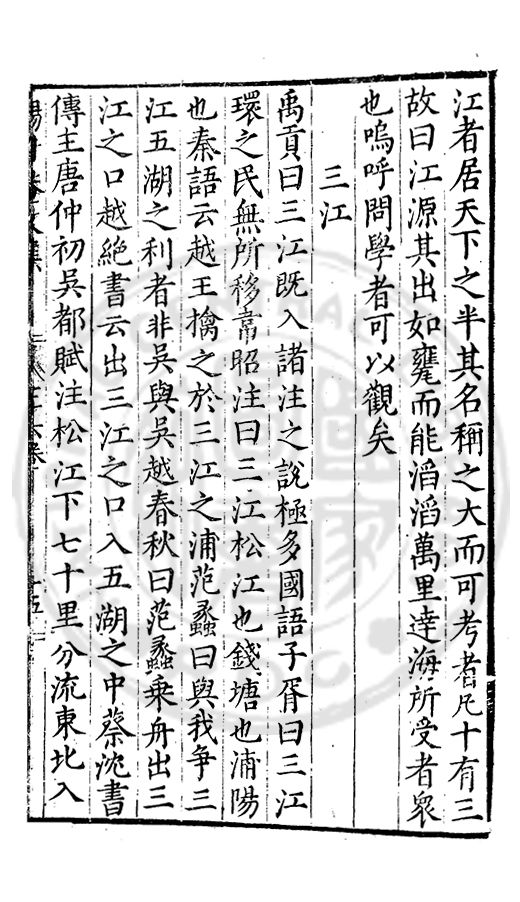 江者居天下之半其名稱之大而可考者凡十有三
故曰江源其出如甕而能滔滔萬里達海所受者衆
也嗚呼問學者可以觀矣
三江
禹貢曰三江既入諸注之說極多國語子胥曰三江
環之民無所移韋昭注曰三江松江也錢塘也浦陽
也秦語云越王擒之於三江之浦范蠡曰與我爭三
江五湖之利者非吳與吳越春秋曰范蠡乗舟出三
江之口越絶書云出三江之口入五湖之中蔡沈書
傳主唐仲初吳都賦注松江下七十里分流東北入